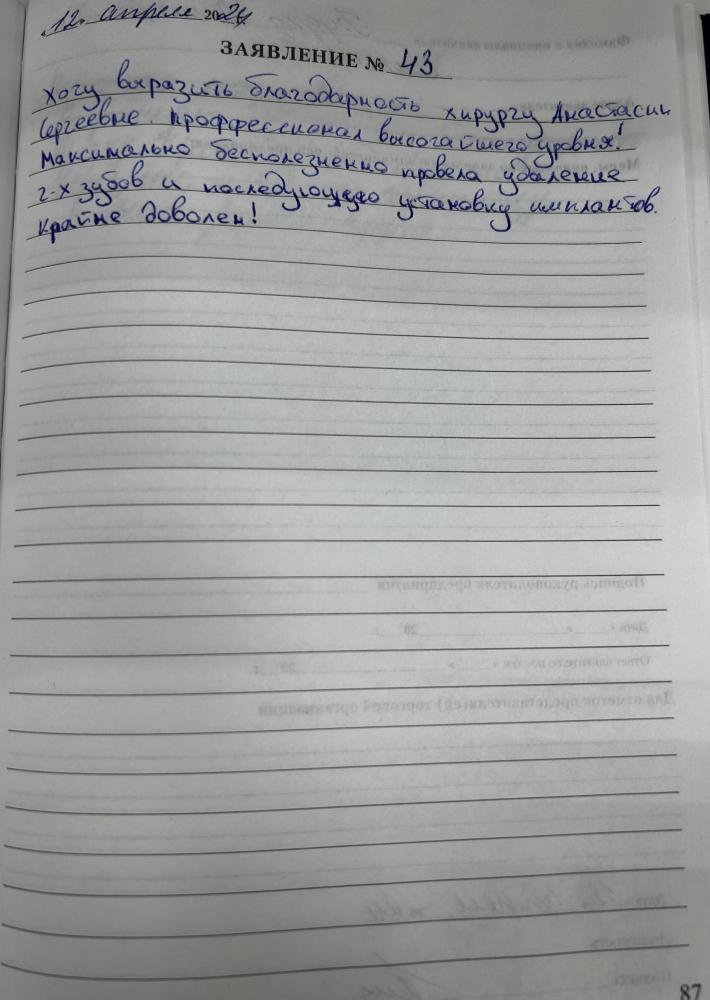 12. апреля 2024
ЗАЯВЛЕНИЕ № 43
Хочу выразить благодарность хирургу Анастасии
Сергеевне. Проффессионал высочайшего уровня!
Максимально бесполезненно провела удаление
2-х зубов и последующую установку имплантов.
Крайне доволен!
87